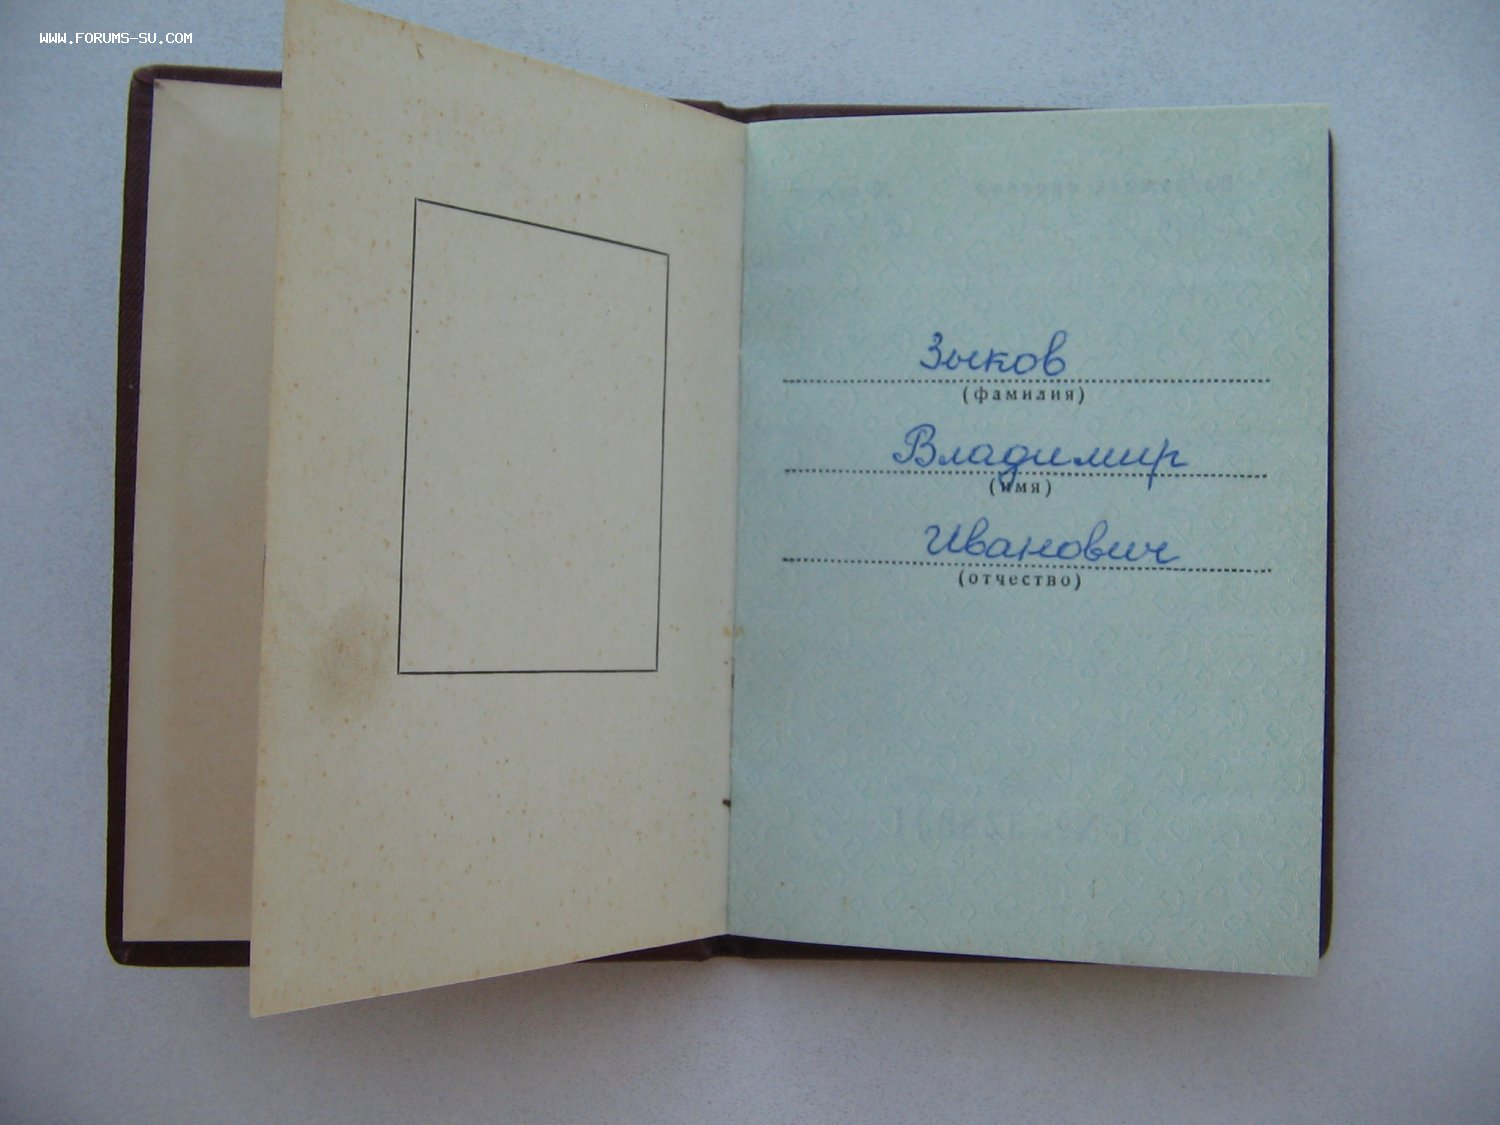 WWW.FORUMS-SU.COM
Зыков
(фамилия)
Владимир
(имя)
Иванович
(отчество)